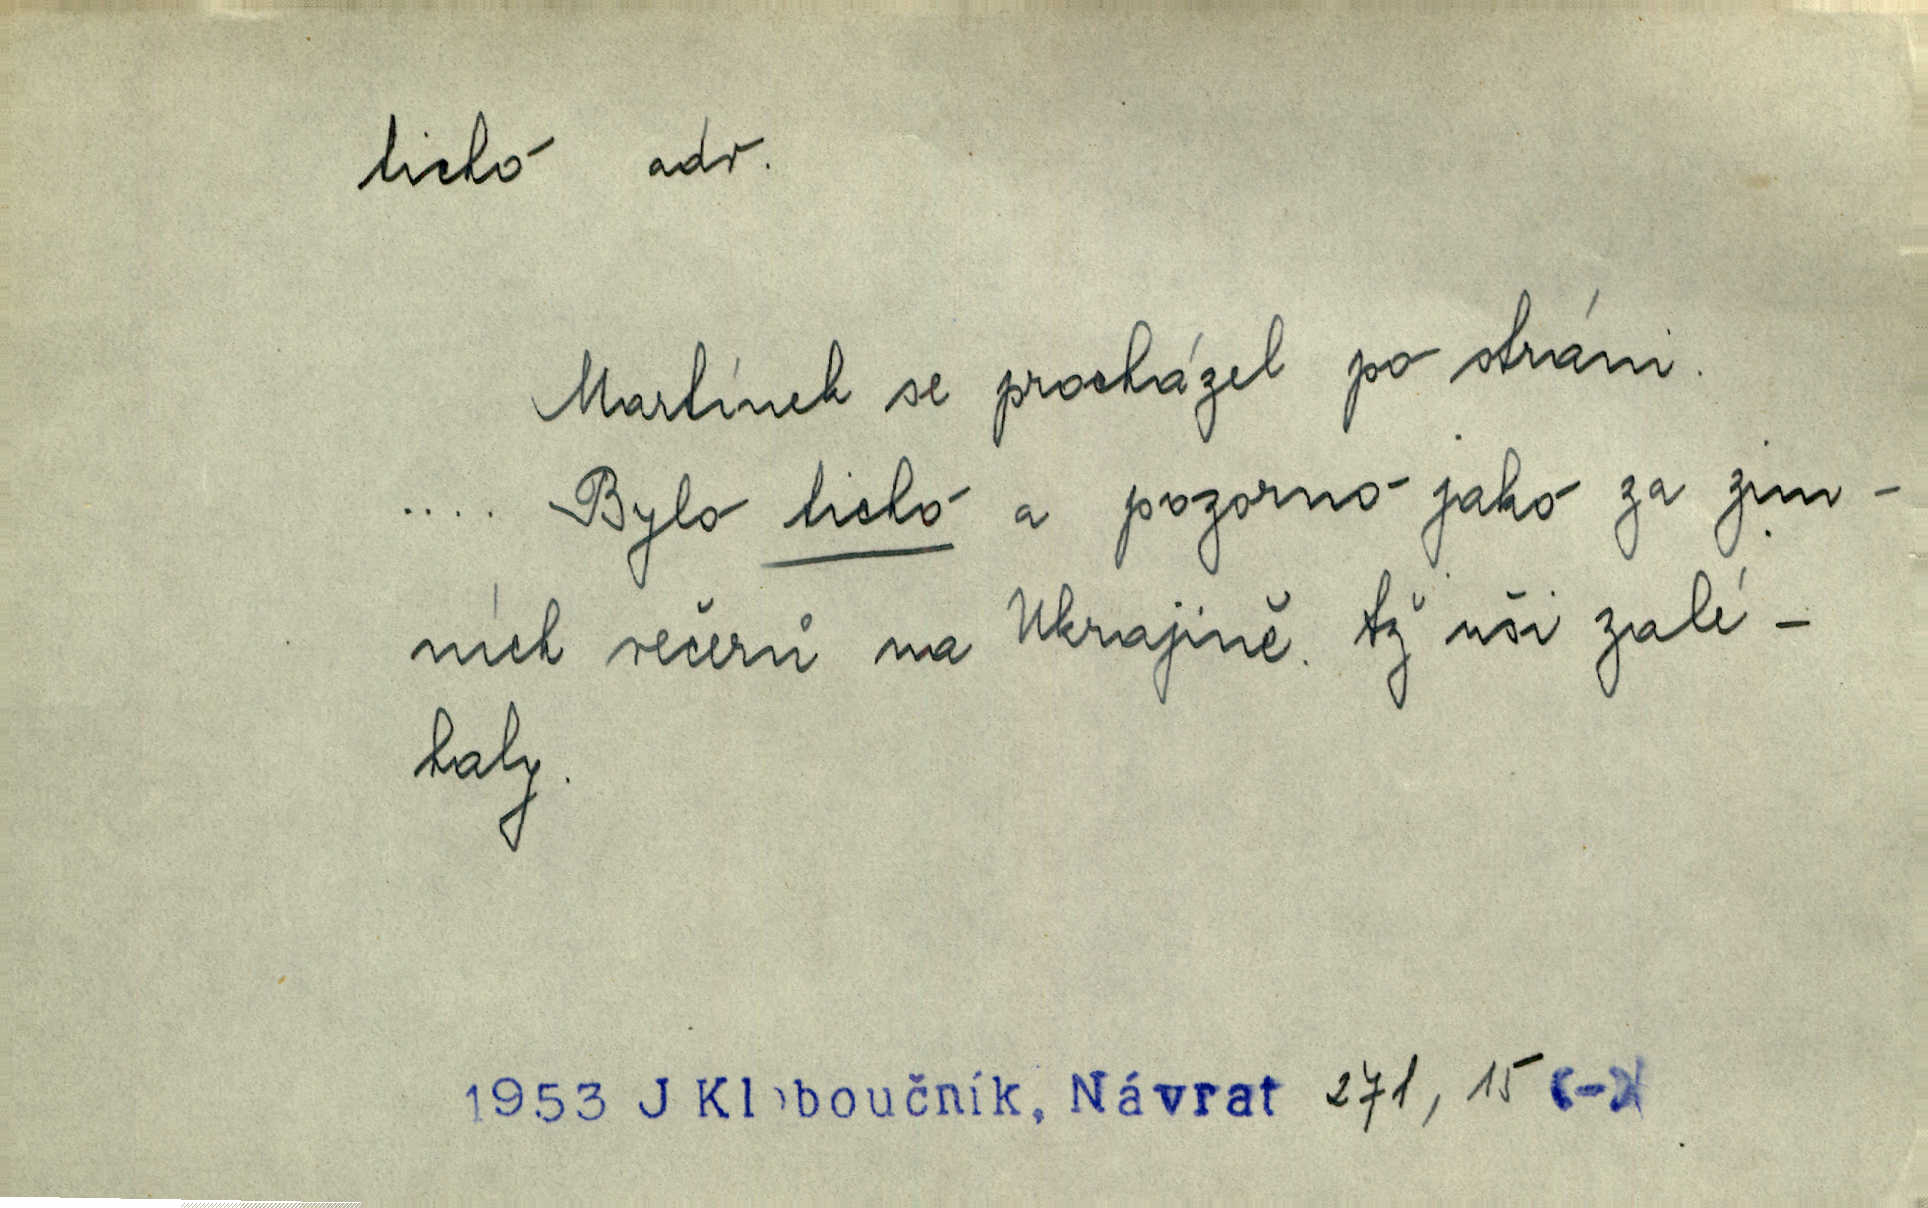 ticho adv.
Martínek se procházel po stráni.
.... Bylo ticho a pozorno jako za zim-
ních večerů na Ukrajině. Až uši zalé-
haly.
1953 J Kloboučník, Návrat 271, 15 (-)